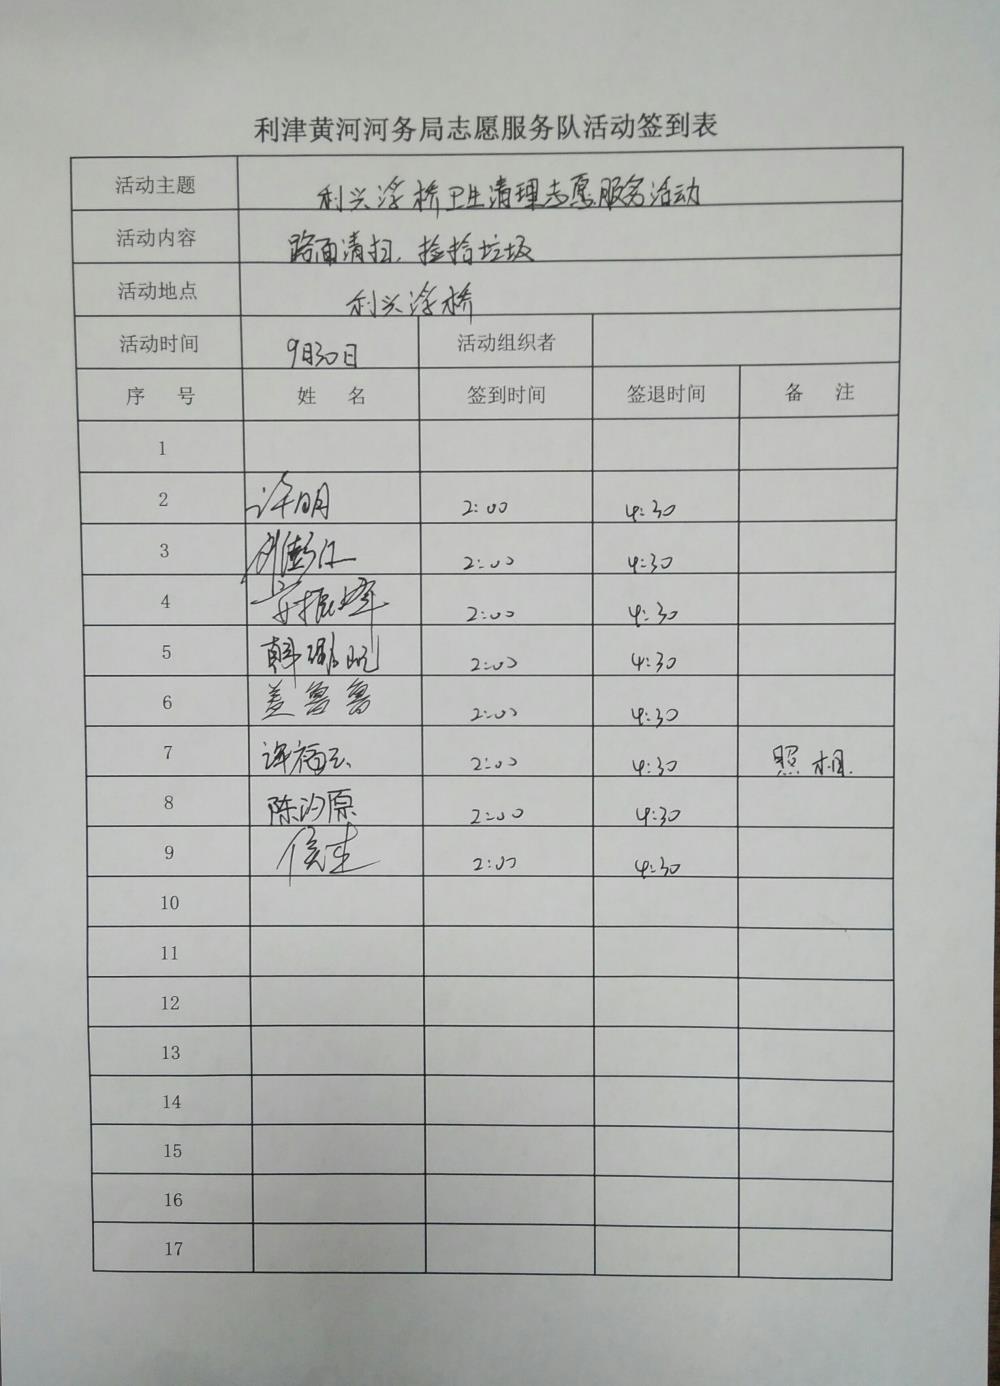 利津黄河河务局志愿服务队活动签到表
活动主题 利兴浮桥卫生清理志愿服务活动
活动内容 路面清扫、捡拾垃圾
活动地点 利兴浮桥
活动时间 9月30日 活动组织者
序 号 姓 名 签到时间 签退时间 备 注
1
2 许明 2:00 4:30
3 2:00 4:30
4 2:00 4:30
5 2:00 4:30
6 盖鲁鲁 2:00 4:30
7 2:00 4:30 照相.
8 陈汐原 2:00 4:30
9 2:00 4:30
10
11
12
13
14
15
16
17